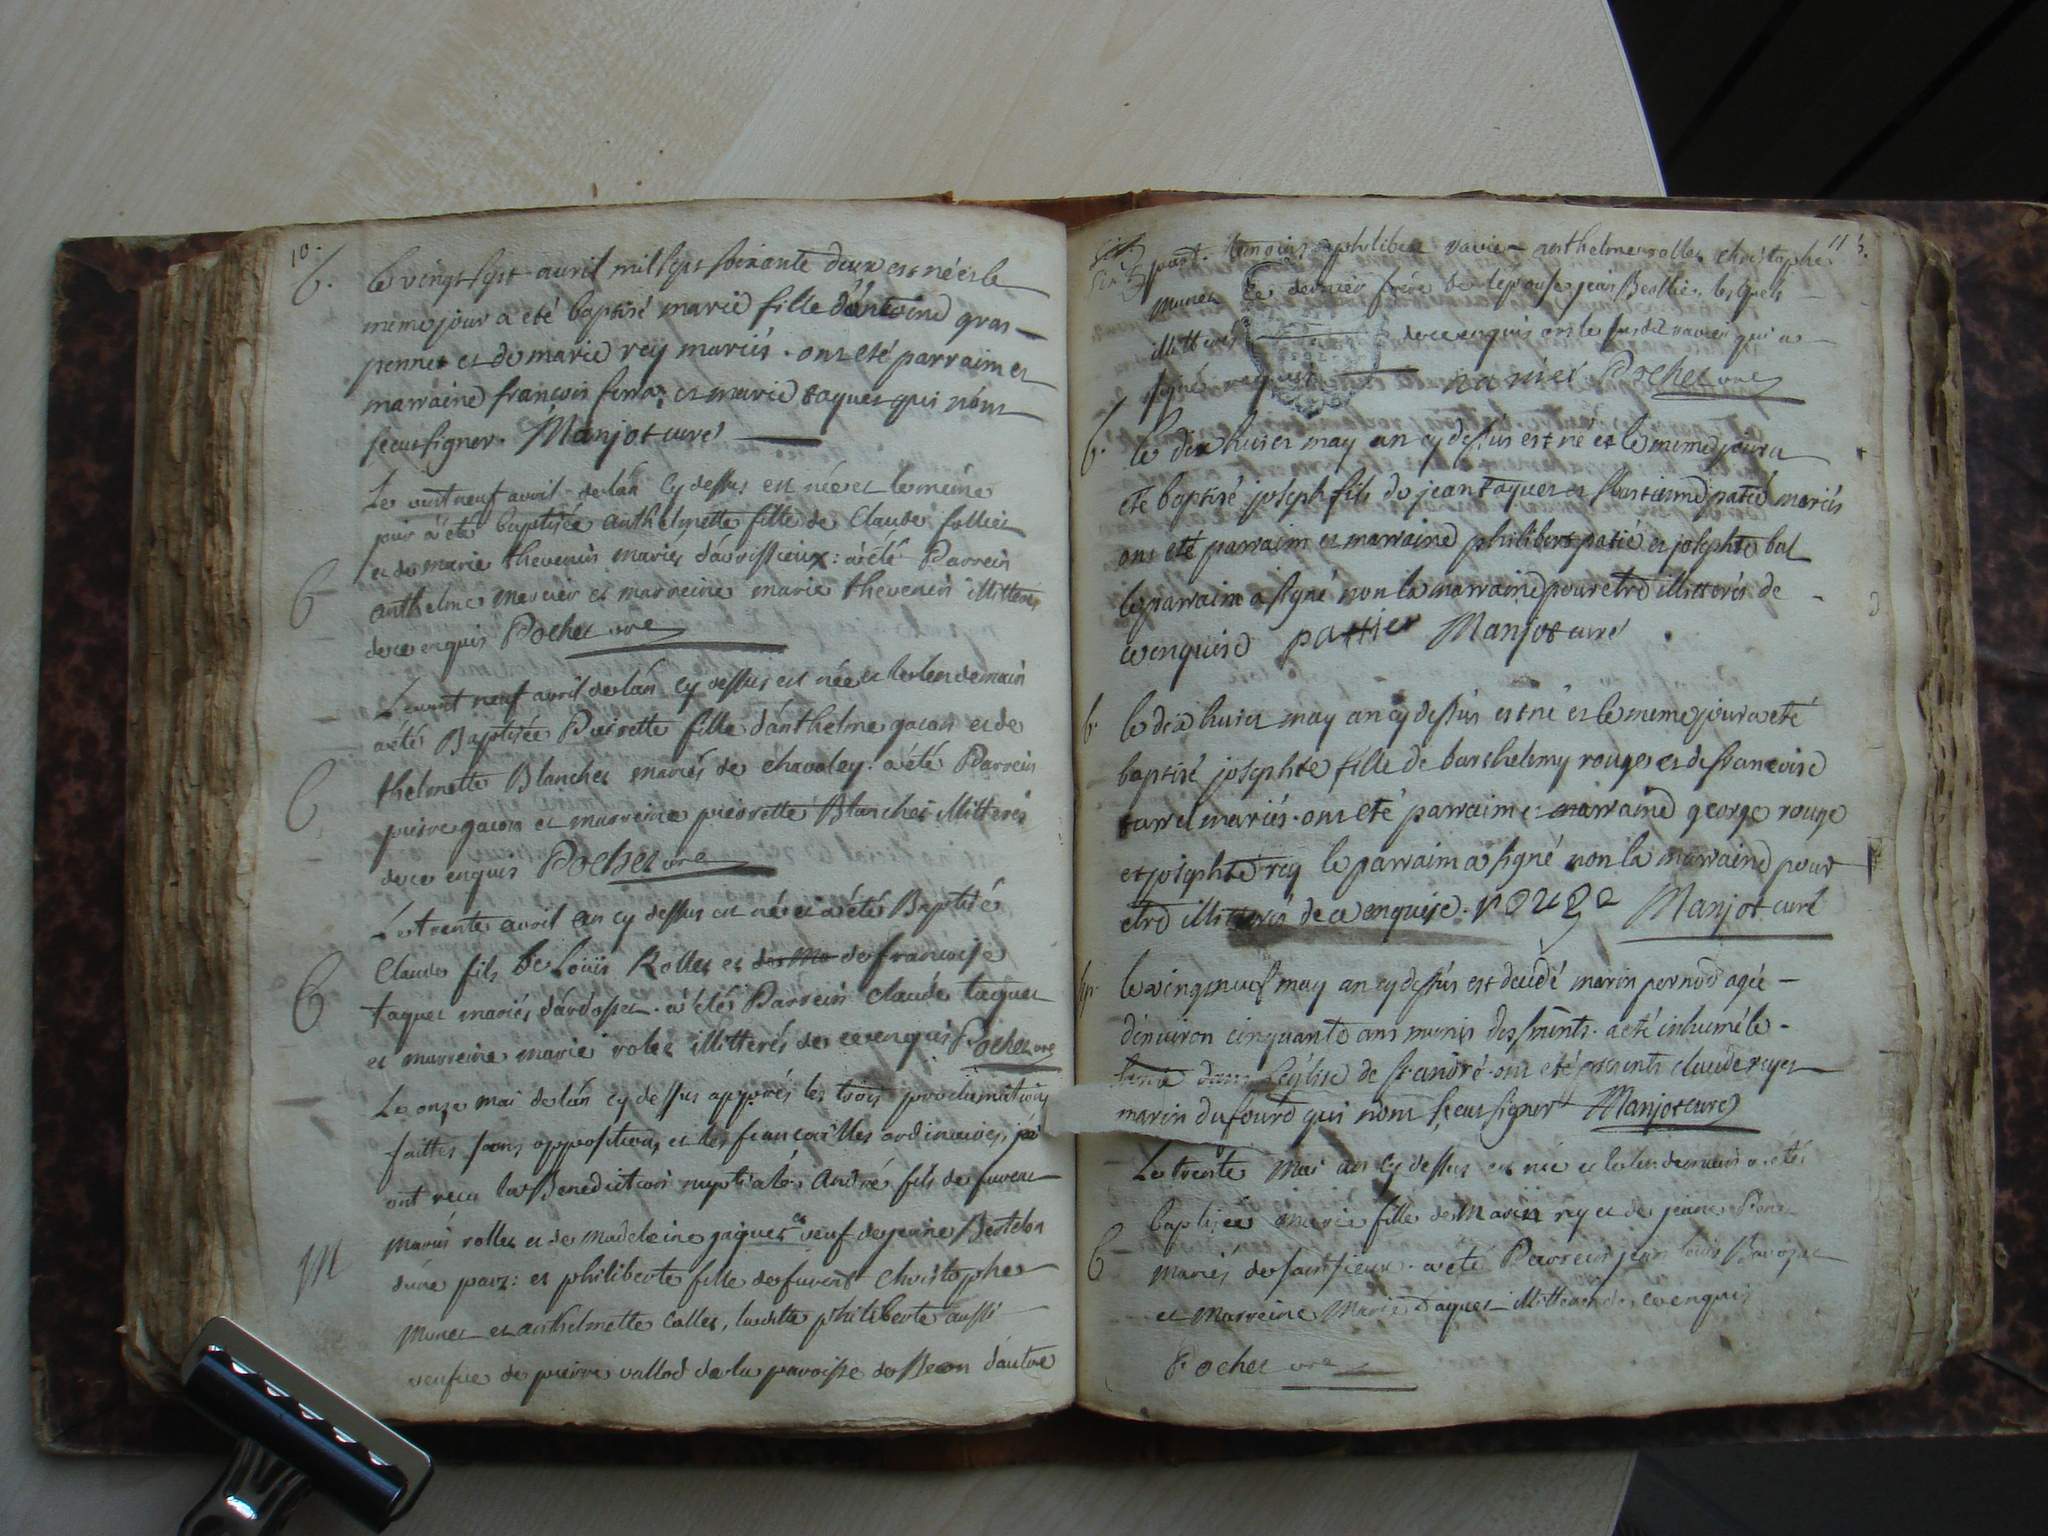 10.
b. le vingt sept avril mil sept soixante deux est né et le
meme jour a eté baptisé marie fille d'antoine gras
pennet et de marie rey mariés. ont eté parraim et
marraine françois et marie taquet qui n'ont
sceut signer. Manjot curé
Le vint neuf avril de lan cy dessus est née et le même
jour a été baptisée anthelmette fille de Claude follier
et de marie thevenin mariés d'avrissieux: a été Parrein
b anthelme mercier et marreine marie thevenin illitteres
de ce enquis Pochet vre
Le vint neuf avril de lan cy dessus est née et le lendemain
a été Baptisée Pierrette fille d'anthelme gacon et de
b thelmette Blanchet mariés de chavoley. a été Parrein
pierre gacon et marreine pierrette Blanchet illitterés
de ce enquis Pochet vre
Le trente avril an cy dessus est né et a été Baptisé
Claude fils de Loüis Rollet et de françoise
b taquet mariés d'ardosset. a été Parrein claude taquet
et marreine marie rolet illitterés de ce enquis Pochet vre
Le onze mai de lán cy dessus apprés les trois proclamations
faittes sans opposition, et les fiançailles ordinaires,
ont recu la Benediction nuptiale André fils de fuven
M Marin rollet et de madeleine jaquet et veuf de jeanne Bertelon
d'une part: et philiberte fille de fuvent Christophe
Munet et anthelmette Collet, laditte philiberte aussi
veufve de pierre vallod de la paroisse de Beon d'autre
11
part. temoins philibert navier anthelme rollet christophe
Munet le dernier frère de l'epouse jean Berthier lesquels
illitterés de ce enquis ors le susdit navier qui a
signé requis navier Pochet vre
b. le dix huict may an cy dessus est né et le meme jour a
eté baptisé joseph fils de jean taquet et patié mariés
ont eté parraim et marraine philibert patié et josephte bal
le parraim a signé non la marraine pour etre illitterés de
ce enquise pattier Manjot curé
b. le dix huict may an cy dessus est né et le meme jour a eté
baptisé josephte fille de barthelemy rouge et de francoise
tarrel mariés. ont eté parraim et marraine george rouge
et josephte rey le parraim a signé non la marraine pour
etre illitterés de ce enquise. rouge Manjot curé
le vingt neuf may an cy dessus est decedé marin pernod agé
d'environ cinquante ans munis des sacrements. a eté inhumé le
dans l'église de St. andré. ont eté presents claude reyet
marin dufourd qui n'ont sceut signer Manjot curé
Le trente Mai an cy dessus est née et le lendemain a été
baptisée marie fille de Marin rey et de jeanne
b mariés de . a été Parrein jean louis
et Marreine Marie taquet illitterés de ce enquis
Pochet vre